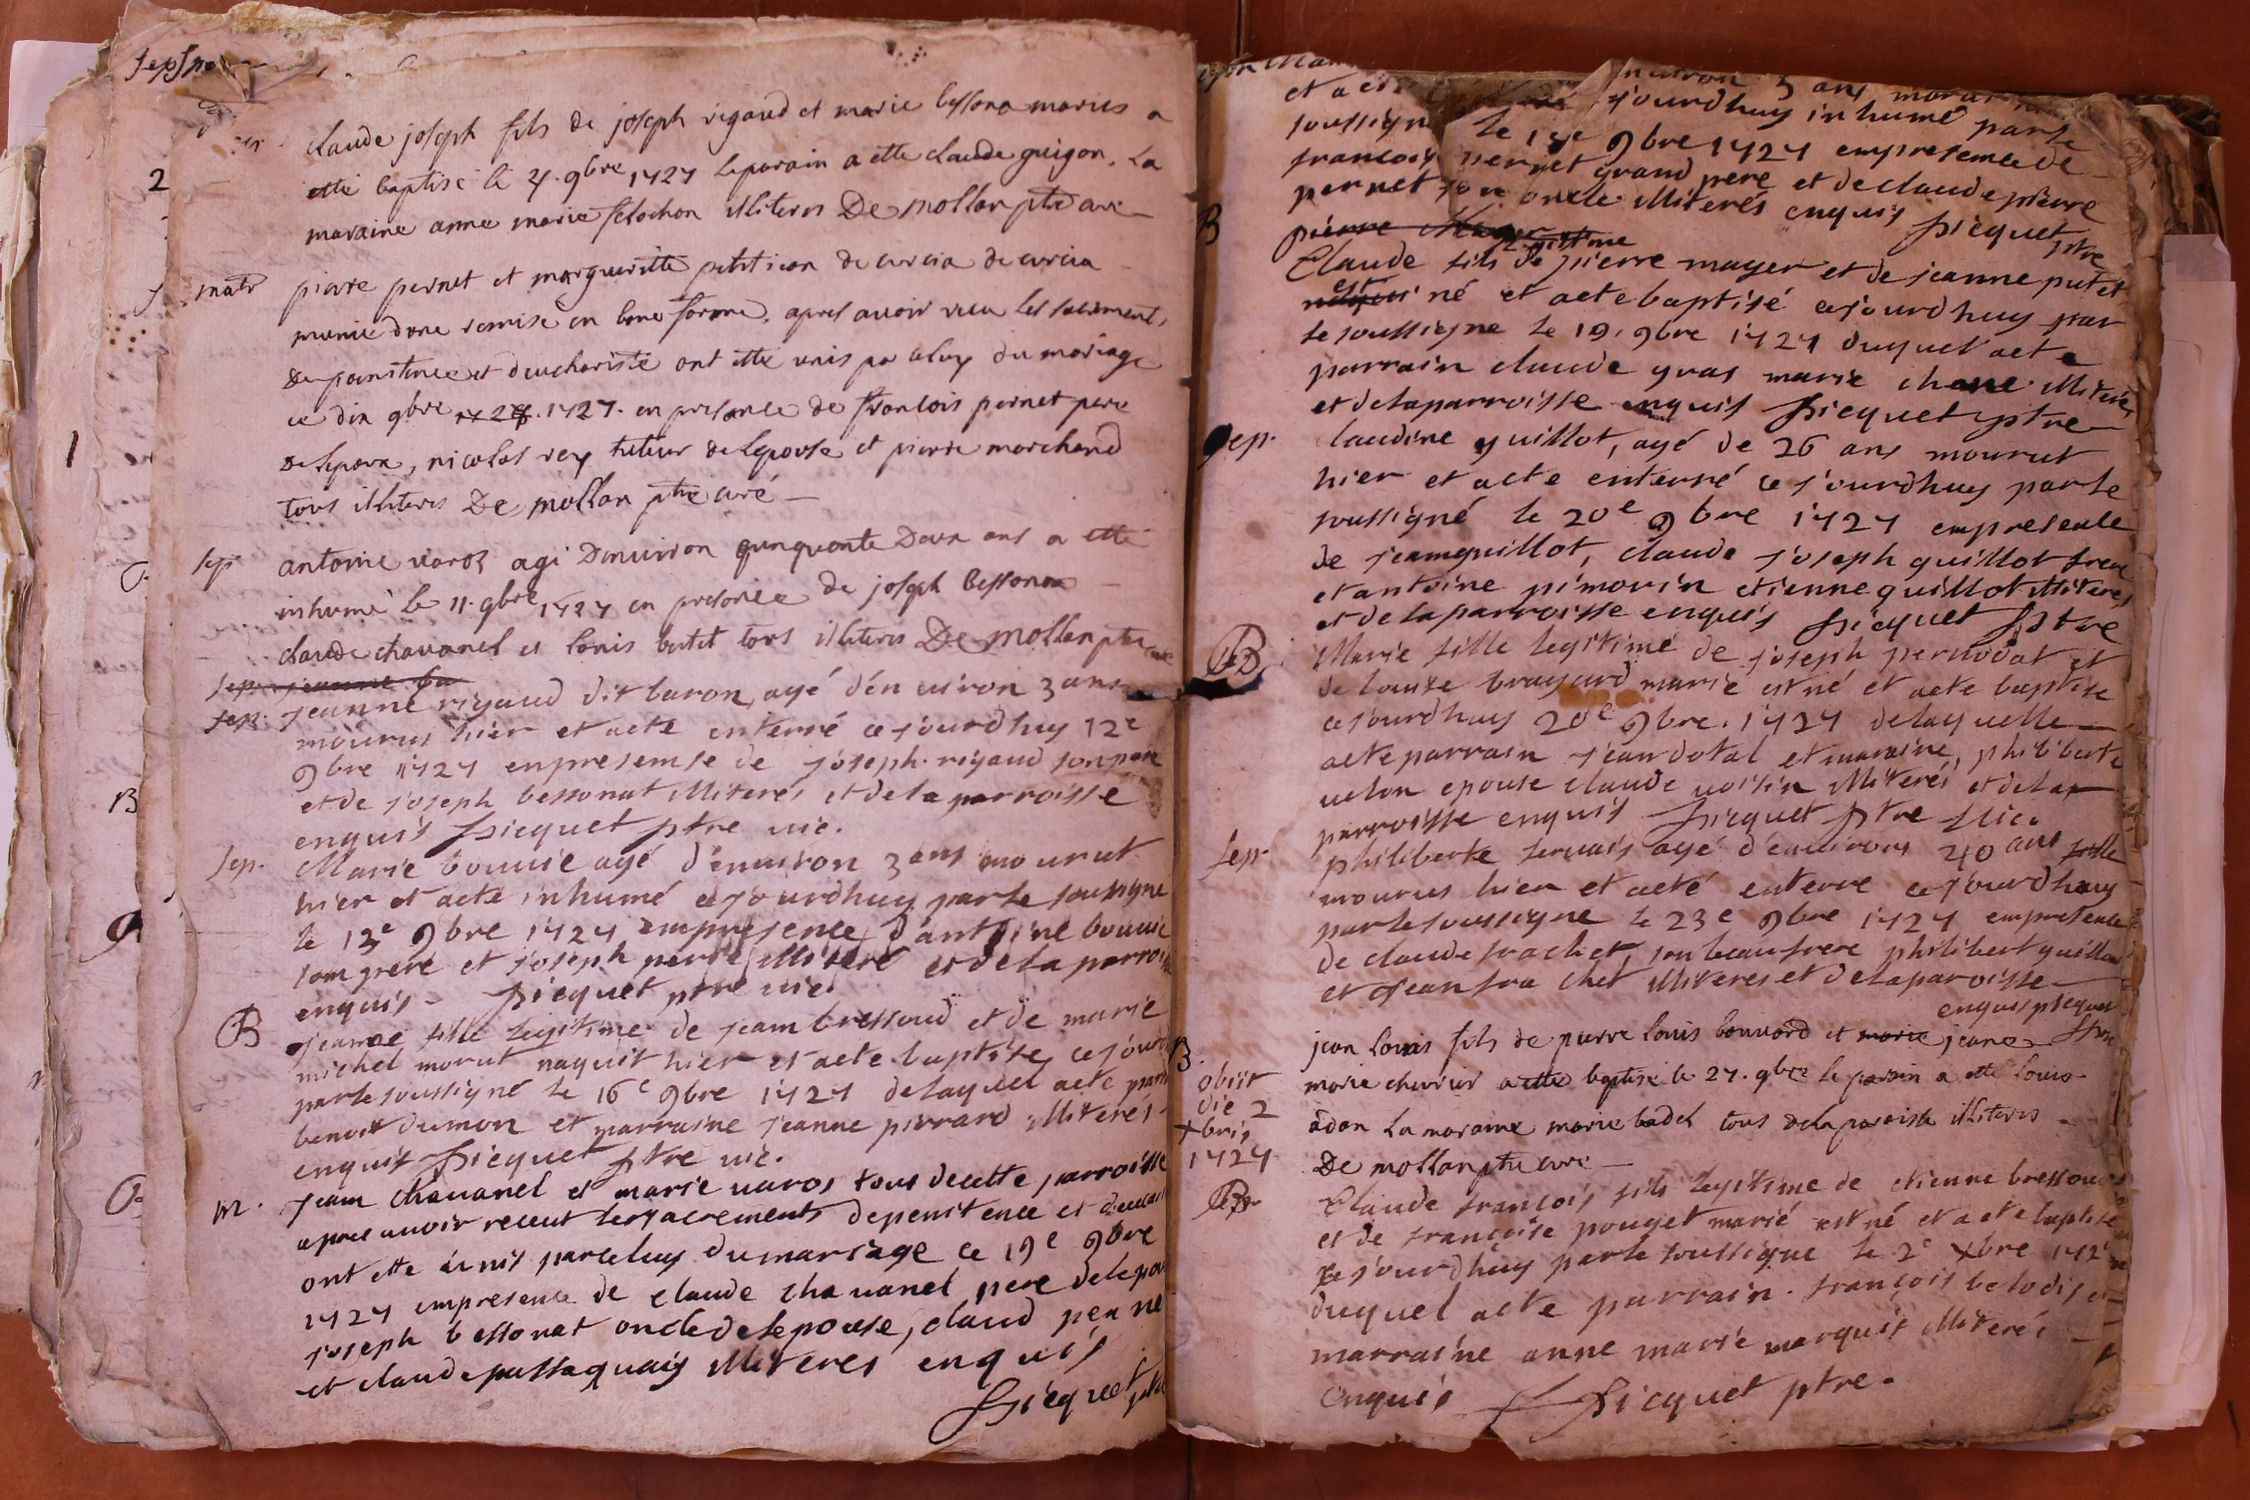 sep
claude joseph fils de joseph rigaud et marie bessona maries a
etté baptisé le 4. 9bre 1727 le parain a etté claude guigon. La
maraine anne marie illiteres De mollan ptre curé
matr pierre pernet et margueritte petit jean de curcia de curcia
munie dune remise en bone forme. apres avoir receu les sacrements
De penitence et deucharistie ont etté unis par celuy du mariage
ce dix 9bre 1727. en presence de francois pernet pere
de lepoux, nicolas rey tuteur de lepouse et pierre marchand
tous illiteres De mollan ptre curé
sep antoine varos agé Denviron quinquante Deux ans a etté
inhumé le 11. 9bre 1727 en presence de joseph bessona
claude chavanel et louis butet tous illiteres De mollan ptre curé
sep. jeanne
sep. jeanne rigaud dit baron, agé d'environ 3 ans
mourus hier et a ete enterré ce jourdhuy 12e
9bre 1727 en presemse de joseph rigaud son pere
et de joseph bessonat illiterés et de la parroisse
enquis picquet ptre vic.
sep. Marie bouvie agé d'environ 3 ans mourut
hier et a eté inhumé ce jourdhuy par le sousigne
le 13e 9bre 1727 empresence d'antoine bouvie
son frere et joseph illiteré et de la parroisse
enquis picquet ptre vic.
B jeanne fille legitime de jeam bressoud et de marie
michel morut naquit hier et a ete baptisée ce jourd
par le soussigné le 16e 9bre 1727 de laquel a ete parrain
benoit dumon et marraine jeanne pirrard illiterés
enquis picquet ptre vic.
m. jeam chavanel et marie varos tous decette parroisse
apres avoir receut les sacrements de penitence et deucari
ont ette unis par celuy du mariage ce 19e 9bre
1727 empresence de claude chavanel pere de lepou
joseph bessonat oncle de lepouse, claud
et claude passaquais illiteres enquis
picquet ptre
environ 3 ans mourut
et a ete jourdhuy inhumé par le
soussigne le 18e 9bre 1727 empresence de
francois pernet grand pere et de claude pierre
pernet son oncle illiterés enquis picquet ptre
pierre
legittime
B Claude fils de pierre mayer et de jeanne putet
est né et a ete baptisé cejourdhuy par
le soussigne le 19. 9bre 1727 duquel a ete
parrain claude gras marie illiteres
et de la parroisse enquis picquet ptre
sep. laudine guillot, agé de 26 ans mourut
hier et a ete enterré ce jourdhuy par le
soussigné le 20e 9bre 1727 empresence
de jeamguillot, claude joseph guillot frere
et antoine pimorin etienne guillot illiteres
et de la parroisse enquis picquet ptre
B Marie fille legitime de joseph pernodat et
de louise brayard marié est né et a ete baptise
ce jourdhuy 20e 9bre. 1727 de laquelle
a ete parrain jean dotal et maraine, philiberte
velon epouse claude voisin illiterés et de la
parroisse enquis picquet ptre vic.
sep philiberte servais agé d'environs 40 ans
mourus hier et a eté enterré ce jourdhuy
par le soussigne le 23e 9bre 1727 empresence
de claude frachet, son beaufrere philibert guillot
et jean frachet illiteres et de la paroisse
enquis picquet ptre
B jean louis fils de pierre louis bouvard et marie jeane
obiit die 2 xbris 1727
marie chevrier a etté baptisé le 27. 9bre le parain a etté louis
adan La maraine marie badel tous de la paroisse illiteres
De mollan ptre curé
B Claude francois fils legitime de etienne bressoud
et de francoise pouget marié est né et a ete baptisé
ce jourdhuy par le soussigne le 2e xbre 1727
duquel a ete parrain. francois et
marraine anne marie marquis illiterés
enquis picquet ptre.